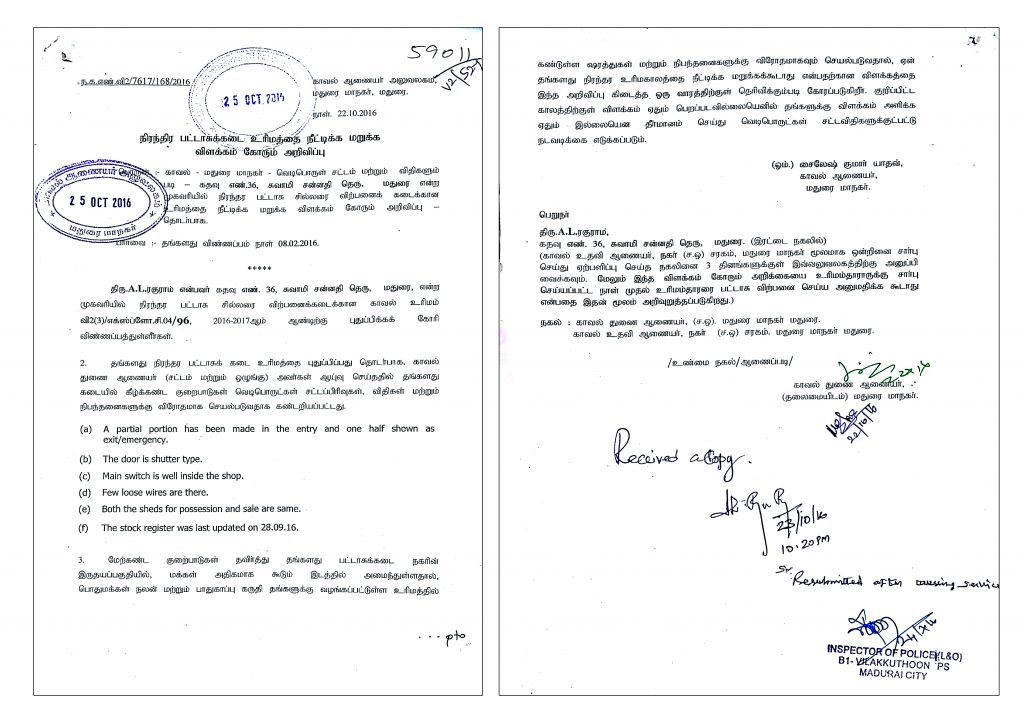 59011
V2/52
ந.க.எண்.வி2/7617/168/2016
காவல் ஆணையர் அலுவலகம்,
மதுரை மாநகர், மதுரை.
நாள். 22.10.2016
25 OCT 2016
நிரந்திர பட்டாசுக்கடை உரிமத்தை நீட்டிக்க மறுக்க
விளக்கம் கோரும் அறிவிப்பு
காவல் - மதுரை மாநகர் - வெடிபொருள் சட்டம் மற்றும் விதிகளும்
படி – கதவு எண்.36, சுவாமி சன்னதி தெரு, மதுரை என்ற
முகவரியில் நிரந்தர பட்டாசு சில்லரை விற்பனைக் கடைக்கான
உரிமத்தை நீட்டிக்க மறுக்க விளக்கம் கோரும் அறிவிப்பு –
தொடர்பாக.
காவல் ஆணையர் அலுவலகம்
25 OCT 2016
மதுரை மாநகர்
பார்வை :- தங்களது விண்ணப்பம் நாள் 08.02.2016.
*****
திரு.A.L.ரகுராம் என்பவர் கதவு எண். 36, சுவாமி சன்னதி தெரு, மதுரை, என்ற
முகவரியில் நிரந்தர பட்டாசு சில்லரை விற்பனைக்கடைக்கான காவல் உரிமம்
வி2(3)/எக்ஸ்ப்ளோ.சி.04/96, 2016-2017ஆம் ஆண்டிற்கு புதுப்பிக்கக் கோரி
விண்ணப்பத்துள்ளீர்கள்.
2. தங்களது நிரந்தர பட்டாசுக் கடை உரிமத்தை புதுப்பிப்பது தொடர்பாக, காவல்
துணை ஆணையர் (சட்டம் மற்றும் ஒழுங்கு) அவர்கள் ஆய்வு செய்ததில் தங்களது
கடையில் கீழ்க்கண்ட குறைபாடுகள் வெடிபொருட்கள் சட்டப்பிரிவுகள், விதிகள் மற்றும்
நிபந்தனைகளுக்கு விரோதமாக செயல்படுவதாக கண்டறியப்பட்டது.
(a) A partial portion has been made in the entry and one half shown as
exit/emergency.
(b) The door is shutter type.
(c) Main switch is well inside the shop.
(d) Few loose wires are there.
(e) Both the sheds for possession and sale are same.
(f) The stock register was last updated on 28.09.16.
3. மேற்கண்ட குறைபாடுகள் தவிர்த்து தங்களது பட்டாசுக்கடை நகரின்
இருதயப்பகுதியில், மக்கள் அதிகமாக கூடும் இடத்தில் அமைந்துள்ளதால்,
பொதுமக்கள் நலன் மற்றும் பாதுகாப்பு கருதி தங்களுக்கு வழங்கப்பட்டுள்ள உரிமத்தில்
...pto
கண்டுள்ள ஷரத்துகள் மற்றும் நிபந்தனைகளுக்கு விரோதமாகவும் செயல்படுவதால், ஏன்
தங்களது நிரந்தர உரிமகாலத்தை நீட்டிக்க மறுக்கக்கூடாது என்பதற்கான விளக்கத்தை
இந்த அறிவிப்பு கிடைத்த ஒரு வாரத்திற்குள் தெரிவிக்கும்படி கோரப்படுகிறீர். குறிப்பிட்ட
காலத்திற்குள் விளக்கம் ஏதும் பெறப்படவில்லையெனில் தங்களுக்கு விளக்கம் அளிக்க
ஏதும் இல்லையென தீர்மானம் செய்து வெடிபொருட்கள் சட்டவிதிகளுக்குட்பட்டு
நடவடிக்கை எடுக்கப்படும்.
(ஒம்.) சைலேஷ் குமார் யாதவ்,
காவல் ஆணையர்,
மதுரை மாநகர்.
பெறுநர்
திரு.A.L.ரகுராம்,
கதவு எண். 36, சுவாமி சன்னதி தெரு, மதுரை. (இரட்டை நகலில்)
(காவல் உதவி ஆணையர், நகர் (ச.ஒ) சரகம், மதுரை மாநகர் மூலமாக ஒன்றினை சார்பு
செய்து ஏற்பளிப்பு செய்த நகலினை 3 தினங்களுக்குள் இவ்வலுவலகத்திற்கு அனுப்பி
வைக்கவும். மேலும் இந்த விளக்கம் கோரும் அறிக்கையை உரிமம்தாரருக்கு சார்பு
செய்யப்பட்ட நாள் முதல் உரிமம்தாரரை பட்டாசு விற்பனை செய்ய அனுமதிக்க கூடாது
என்பதை இதன் மூலம் அறிவுறுத்தப்படுகிறது.)
நகல் : காவல் துணை ஆணையர், (ச.ஒ). மதுரை மாநகர் மதுரை.
காவல் உதவி ஆணையர், நகர் (ச.ஒ) சரகம், மதுரை மாநகர் மதுரை.
/உண்மை நகல்/ஆணைப்படி/
காவல் துணை ஆணையர்,
(தலைமையிடம்) மதுரை மாநகர்.
22/10/16
Received a Copy.
23/10/16
10.20 PM
Sr.
Resubmitted after causing service
24/X/16
INSPECTOR OF POLICE(L&O)
B1- VILAKKUTHOON PS
MADURAI CITY